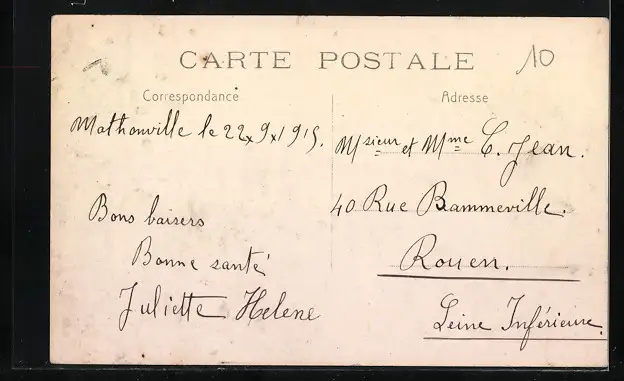 CARTE POSTALE
10
Correspondance
Mathonville le 22x9x1915.
Bons baisers
Bonne santé
Juliette Helene
Adresse
Msieur et Mme C. Jean.
40 Rue Bammeville.
Rouen.
Seine Inférieure.